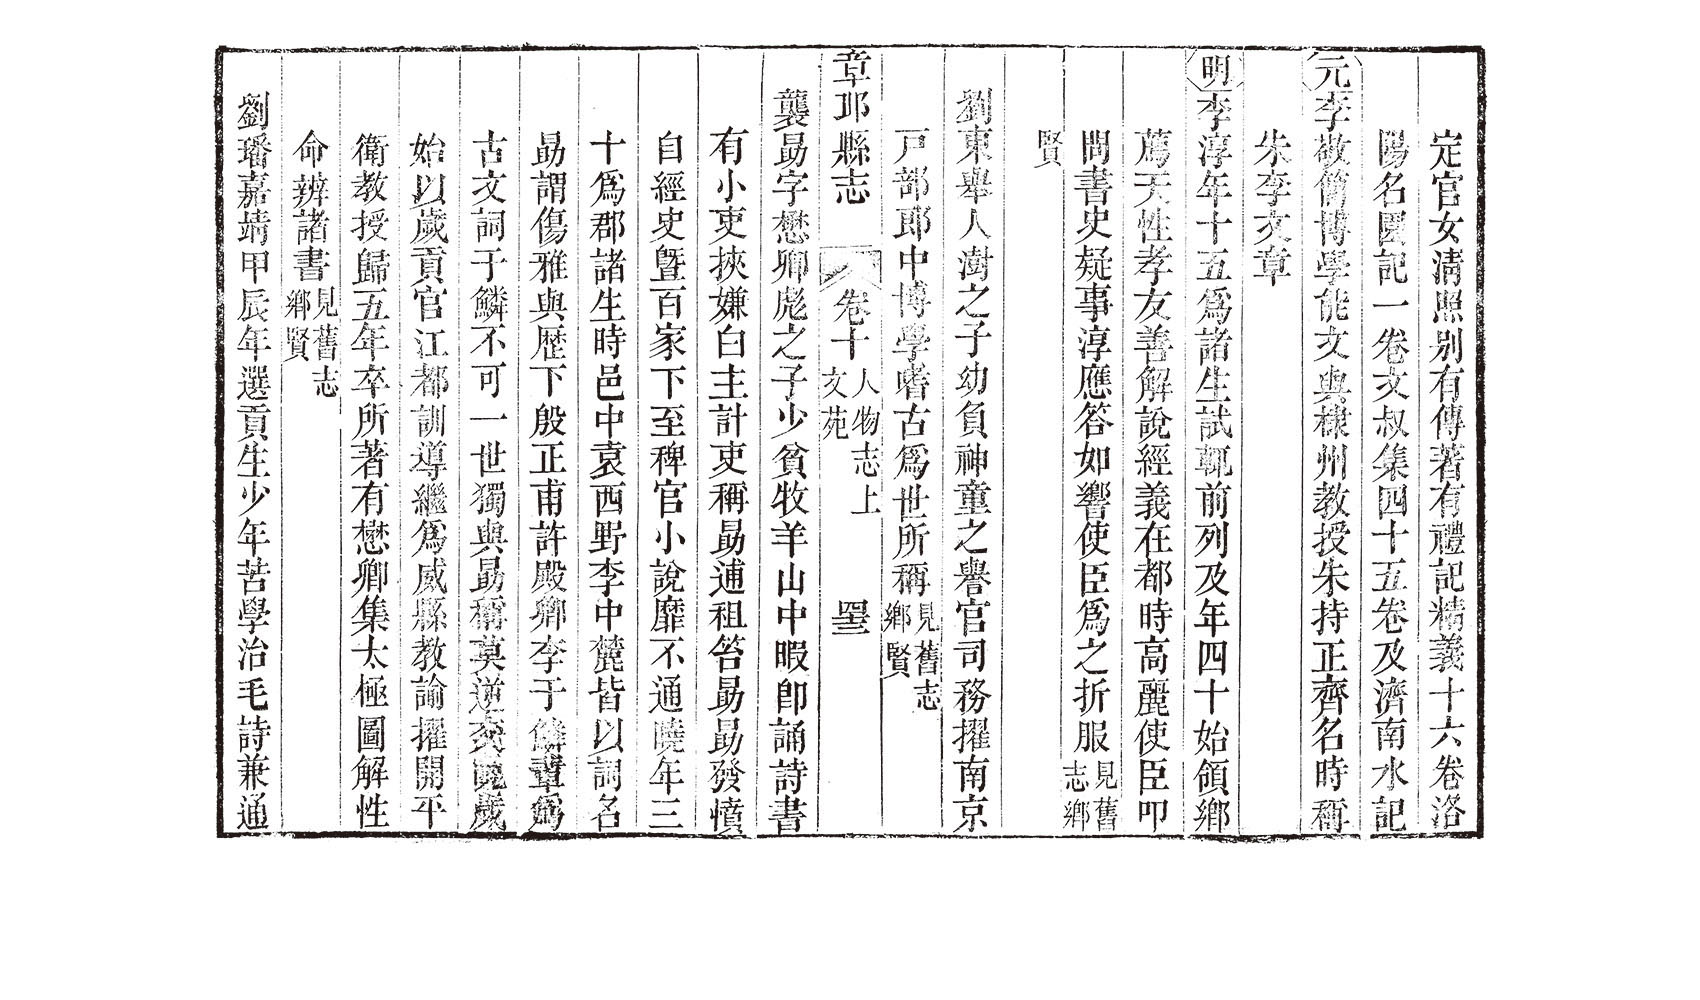 定官女清照别有傳著有禮記精義十六卷洛
陽名園記一卷文叔集四十五卷及濟南水記
元李敬簡博學能文與棣州教授朱持正齊名時稱
朱李文章
明李淳年十五爲諸生試輒前列及年四十始領鄉
薦天性孝友善解說經義在都時高麗使臣叩
問書史疑事淳應答如響使臣爲之折服見舊志鄉
賢
劉東舉人澍之子幼負神童之譽官司務擢南京
戸部郎中博學嗜古爲世所稱見舊志鄉賢
章邱縣志 卷十 人物志上 文苑
襲勗字懋卿彪之子少貧牧羊山中暇卽誦詩書
有小吏挾嫌白主計吏稱勗逋租笞勗勗發憤
自經史曁百家下至稗官小說靡不通曉年三
十爲郡諸生時邑中袁西野李中麓皆以詞名
勗謂傷雅與歷下殷正甫許殿卿李于鱗輩爲
古文詞于鱗不可一世獨與勗稱莫逆交 歲
始以歲貢官江都訓導繼爲威縣教諭擢開平
衛教授歸五年卒所著有懋卿集太極圖解性
命辨諸書見舊志鄉賢
劉璠嘉靖甲辰年選貢生少年苦學治毛詩兼通